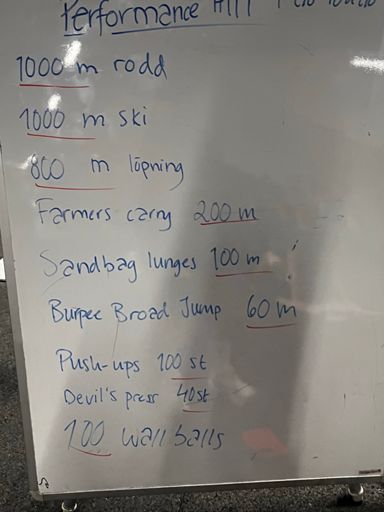 Performance
1000 m rodd
1000 m ski
800 m löpning
Farmers carry 200 m
Sandbag lunges 100 m
Burpee Broad Jump 60 m
Push-ups 100 st
Devil's press 40st
100 wall balls